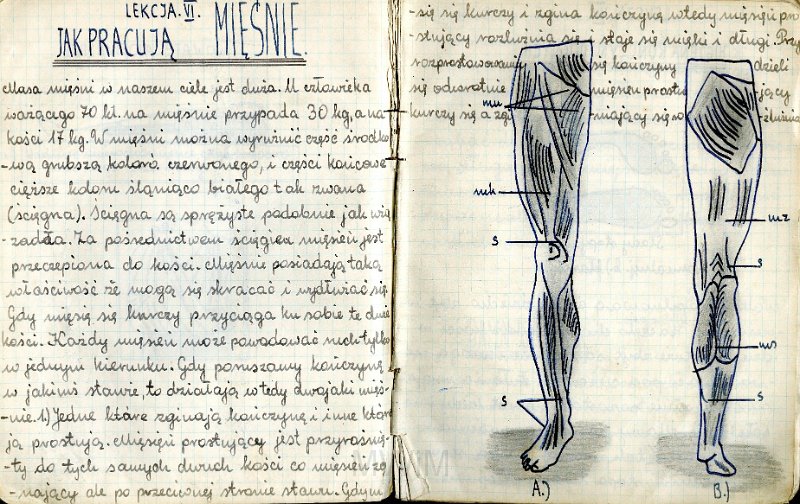 LEKCJA.VI.
JAK PRACUJĄ MIĘŚNIE.
Masa mięśni w naszem ciele jest duża. U człowieka
ważącego 70 kl. na mięśnie przypada 30 kg, a na
kości 17 kg. W mięśni można wyrużnić część środko
-wą grubszą koloru czerwonego, i części końcowe
cięższe koloru śląniąco białego tak zwana
(ścięgna). Ścięgna są sprężyste podobnie jak wią
-zadła. Za pośrednictwem ścięgien mięsień jest
przeczepiona do kości. Mięśnie posiadają taką
właściwość że mogą się skracać i wydłwiać się
Gdy mięsię się kurczy przyciąga ku sobie te dwie
kości. Każdy mięsień może powodować ruch tylko
w jednym kierunku. Gdy poruszamy kończyną
w jakimś stawie, to działają wtedy dwojaki mięś-
-nie. 1.) Jedne które zginają kończynę i inne które
ją prostują. Mięsień prostujący jest przyrośnię-
-ty do tych samych dwuch kości co mięsień zg
-inający ale po przeciwnej stronie stawu. Gdy m
-się się kurczy i zgina kończynę wtedy mięsień pro
-stujący rozluźnia się i staje się miękki i długi. Przy
rozprostowaniu się kończyny dzieli
się odwrotnie mięsień prostu jący
kurczy się a zgi niający się ro zluźnia
mu
mk
s
s
mz
s
ms
s
A.)
B.)